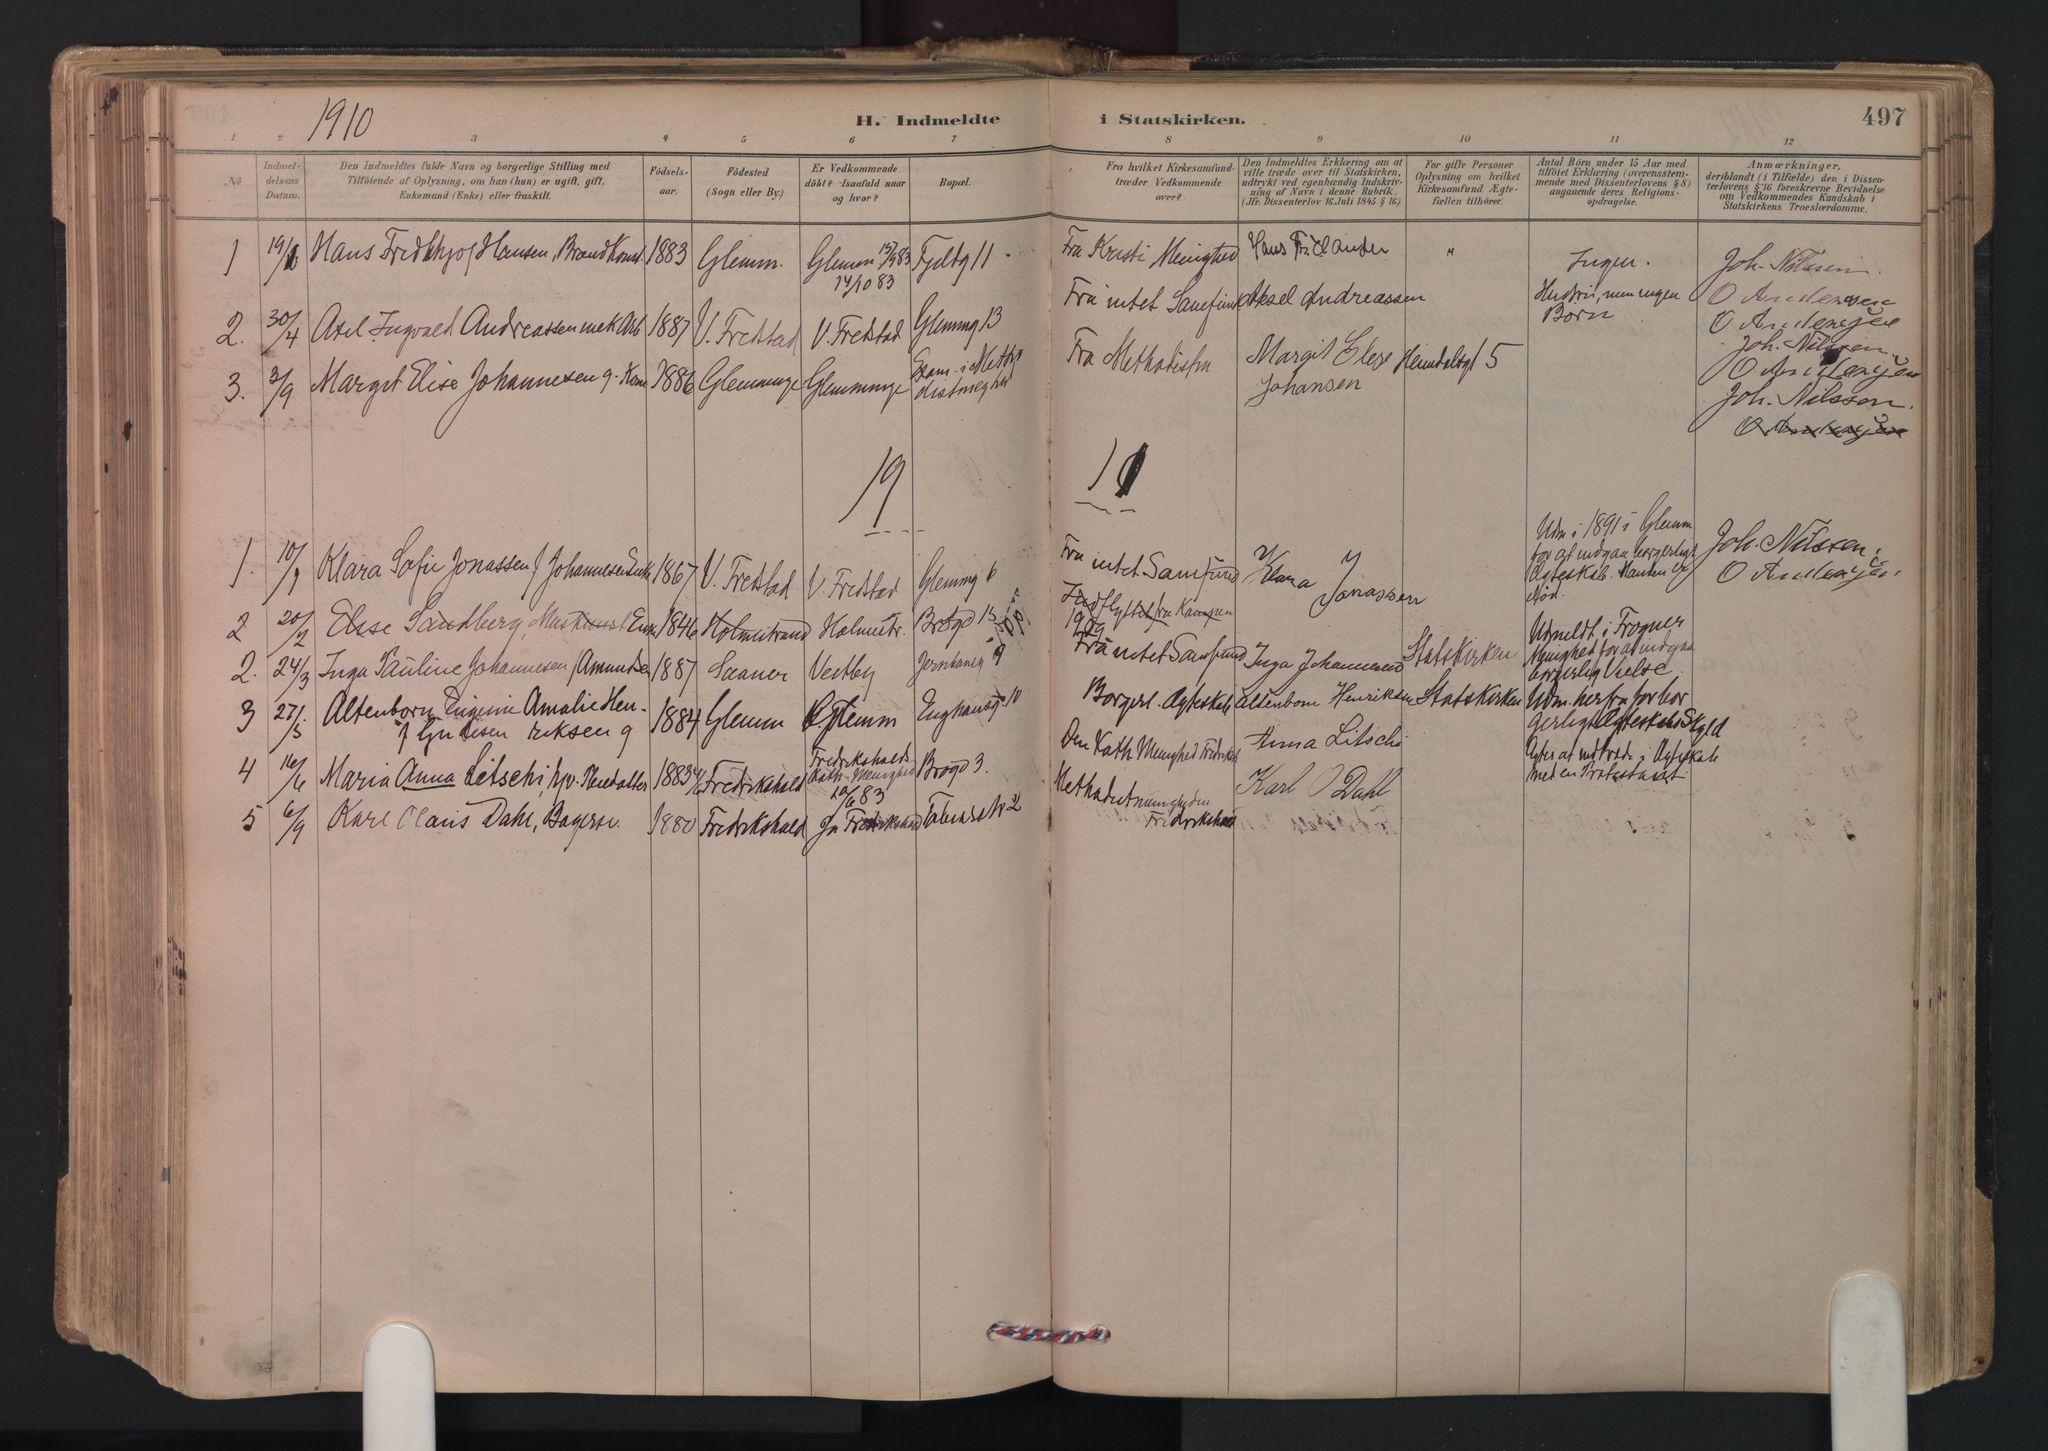 1910
H. Indmeldte i Statskirken.
497
1 2 3 4 5 6 7 8 9 10 11 12
No
Indmeldelsens Datum.
Den Indmeldtes fulde Navn og borgerlige Stilling med
Tilföiende af Oplysning, om han (hun) er ugift, gift,
Enkemand (Enke) eller fraskilt.
Födselsaar.
Födested
(Sogn eller By.)
Er Vedkommende
döbt? isaafald naar
og hvor?
Bopæl.
Fra hvilket Kirkesamfund
træder Vedkommende
over?
Den Indmeldtes Erklæring om at
ville træde over til Statskirken,
udtrykt ved egenhændig Indskrivning
af Navn i denne Rubrik.
(Jfr. Dissenterlov 16 Juli 1845 § 16.)
For gifte Personer
Oplysning om hvilket
Kirkesamfund Ægtefællen
tilhörer.
Antal Börn under 15 Aar med
tilföiet Erklæring (overensstemmende
med Dissenterlovens § 8)
angaaende deres Religionsopdragelse.
Anmærkninger,
deriblandt (i Tilfælde) den i Dissenterlovens
§ 16 foreskrevne Bevidnelse
om Vedkommendes Kundskab i
Statskirkens Troeslærdomme.
1 Hans Fridthjof Hansen, Brandkonst. 1883 Glemm. Glemm 15/9 83 Fjeldg 11 Fra Kristi Menighed Ingen. Joh. Nilssen.
14/10 83
2. 30/4 Axel Ingvald Andreassen mek Arb 1887 V. Fredstad V. Fredstad Glemmg 13 Fra intet Samfund Aksel Andreassen Hustru, men ingen Børn O Andersen
O Andersen
Joh. Nilssen
3. 3/9 Margit Elise Johannesen g. 1886 Glemminge Glemminge Fra Methodistm Margit Elise Johansen Heimdalsgt 5 O Andersen
Joh. Nilssen.
O Andersen
19 11
1. Klara Sofie Jonassen f Johannesen Enke 1867 V. Fredstad V. Fredstad Glemmg 6 Fra intet Samfund Klara Jonassen Udm i 1891 i Glemm for at indgaa borgerligt Ægteskab. Manden er død. Joh. Nilssen.
O Andersen.
2 20/2 Elise Sandberg, Enke 1846 Holmestrand Holmestr. Brogd 15 Indflyttet fra 1909
2. 24/3 Inga Pauline Johannesen f Amundsen 1887 Vestby Jernbaneg 9 Fra intet Samfund Inga Johannesen Statskirken Udmeldt i Frogner Menighed for at indgaa borgerlig Vielse.
3 27/5 Altenborn Eugenie Amalie Henriksen g 1884 Glemm Glemm Enghausg 10 Borgerl. Ægteskab Altenborn Henriksen Statskirken Udm. herfra for borgerligt Ægteskabs Skyld
4 16/6 Maria Anna Litschi, 1883 Fredrikshald Fredrikshalds Kath. Menighed 10/6 83 Brogd 3. Den Kath Menighed Fredriksh Anna Litschi Agter at indtræde i Ægteskab med en Protestant
5 6/9 Karl Claus Dahl, Bagersv. 1880 Fredrikshald Ja Fredrikshald 2 Methodistmenigheden Fredrikshald Karl O Dahl